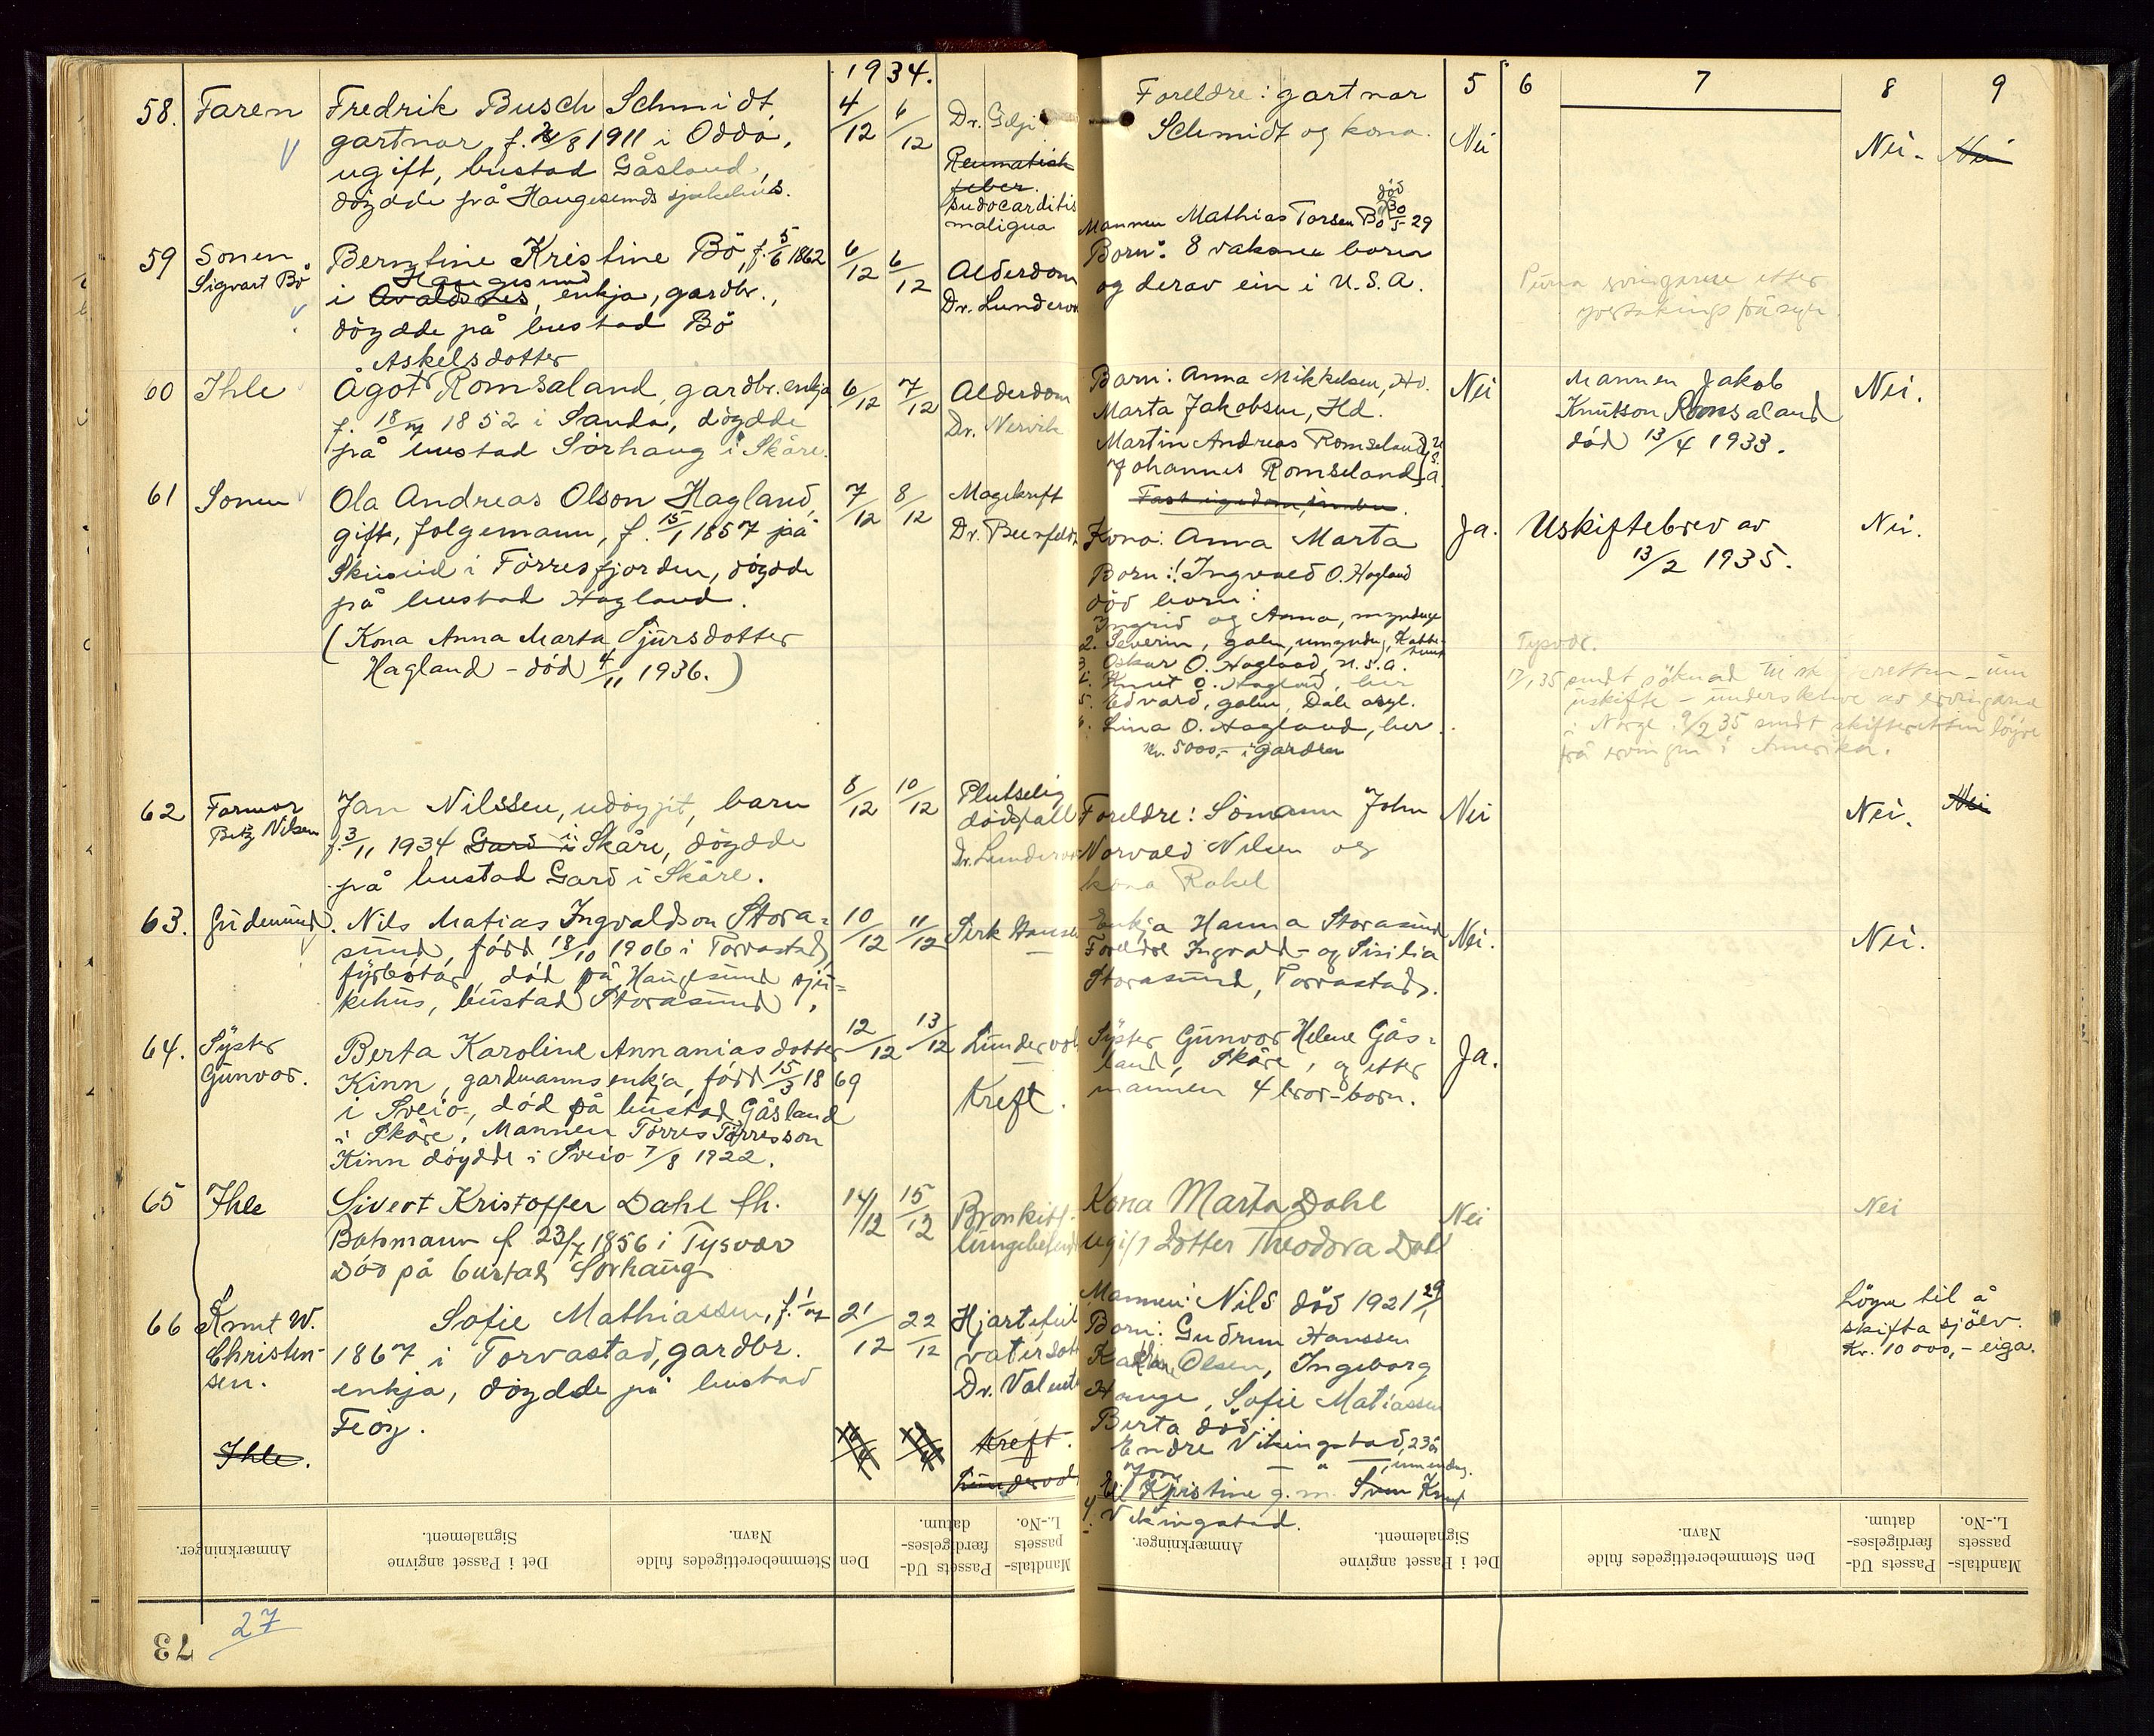 1934. 5 6 7 8 9
58. Faren Fredrik Busch Schmidt, 4/12 6/12 Dr. Gilje Foreldre: gartnar Nei Nei. Nei
gartnar, f. 8 1911 i Odda, Schmidt og kona.
ugift, bustad Gåsland, Reumatisk
döydde på Haugesunds sjukehus. feber.
maligna
59 Sonen Berntine Kristine Bö, f. 5/6 1862 6/12 6/12 Alderdom Mannen Mathias Torsen Bö död 30/5 29
Sigvart Bö i Avaldsnes Haugesund, enkja, gardbr., Dr. Lundervo Born: 8 vaksne born
döydde på bustad Bö og derav ein i U.S.A.
Askelsdotter
60 Ihle Ågot Romsaland, gardbr. enkja 6/12 7/12 Alderdom Barn: Anna Mikkelsen, Hd. Nei Mannen Jakob Nei.
f. 18/7 1852 i Sauda, döydde Dr. Nervik Marta Jakobsen, Hd. Knutson Romsaland
på bustad Sörhaug i Skåre. Martin Andreas Romseland död 13/4 1933.
Johannes Romseland U.S.A.
61 Sonen Ola Andreas Olson Hagland, 7/12 8/12 Magekreft Fast eigedom, innbu. Ja. Uskiftebrev av Nei.
gift, folgemann, f. 15/1 1857 på Dr. Kona: Anna Marta 13/2 1935.
i Förresfjorden, döydde Born: 1. Ingvald O. Hagland
på bustad Hagland. död born:
(Kona Anna Marta Sjursdotter Ingrid og Anna, myndige
Hagland - död 4/11 1936.) 2. Severin, galen, umyndig,
3. Oskar O. Hagland, U.S.A.
4. Knut O. Hagland, her
5. Edvard, galen, Dale asyl.
6. Lina O. Hagland, her
Kr. 5000,- i garden
Tysvær.
17/1 35 sendt söknad til skifteretten - um
uskifte - underskrive av ervingane
i Norge. 9/2 35 sendt skifteretten löyve
frå ervingen i Amerika.
62 Farmor Jan Nilssen, udöypt, barn 8/12 10/12 Plutseleg Foreldre: Sömann John Nei Nei. Nei
Betz Nilsen f. 3/11 1934 Gard i Skåre, döydde dödsfall Norvald Nilsen og
på bustad Gard i Skåre. Dr. Lundervo kona Rakel
63. Gudmund Nils Matias Ingvaldson Stora- 10/12 11/12 Serk Hanse Enkja Hanna Storasund Nei. Nei.
sund, född 18/10 1906 i Torvastad, Foreldre Ingvald- og Sisilia
fyrbötar, död på Haugesund sju- Storasund, Torvastad.
kehus, bustad Storasund.
64. Syster Berta Karoline Annaniasdotter 12/12 13/12 Lundervol Syster Gunvor Helene Gås- Ja.
Gunvor. Kinn, gardmannsenkja, född 15/3 1869 Kreft. land, Skåre, og etter
i Sveio, död på bustad Gåsland mannen 4 bror-born.
i Skåre. Mannen Törres Törresson
Kinn döydde i Sveio 7/8 1922.
65 Ihle Sivert Kristoffer Dahl fh. 14/12 15/12 Bronkitt- Kona Marta Dahl Nei Nei
Botsmann f 23/7 1856 i Tysvær ugift dotter Theodora Dahl
Död på bustad Sörhaug
66 Knut W. Sofie Mathiassen, f. 1/7 21/12 22/12 Hjartefeil Mannen: Nils död 1921 Löyve til å
Christen- 1867 i Torvastad, gardbr. vatersott Born: Gudrun Hanssen skifta sjölv.
sen. enkja, döydde på bustad Dr. Valent Olsen, Ingeborg Kr. 10 000,- eiga.
Feöy. Hauge, Sofie Matiassen
Berta död:
Ihle. Kreft. Endre Vikingstad, 23 år
Lundervold Kristine g. m. Sven Knut
Vikingstad.
Anmærkninger. Det i Passet angivne Signalement. Den Stemmeberettigedes fulde Navn. Passets Ud-færdigelses-datum. Mandtals-passets L.-No.
Anmærkninger. Det i Passet angivne Signalement. Den Stemmeberettigedes fulde Navn. Passets Ud-færdigelses-datum. Mandtals-passets L.-No.
73 27